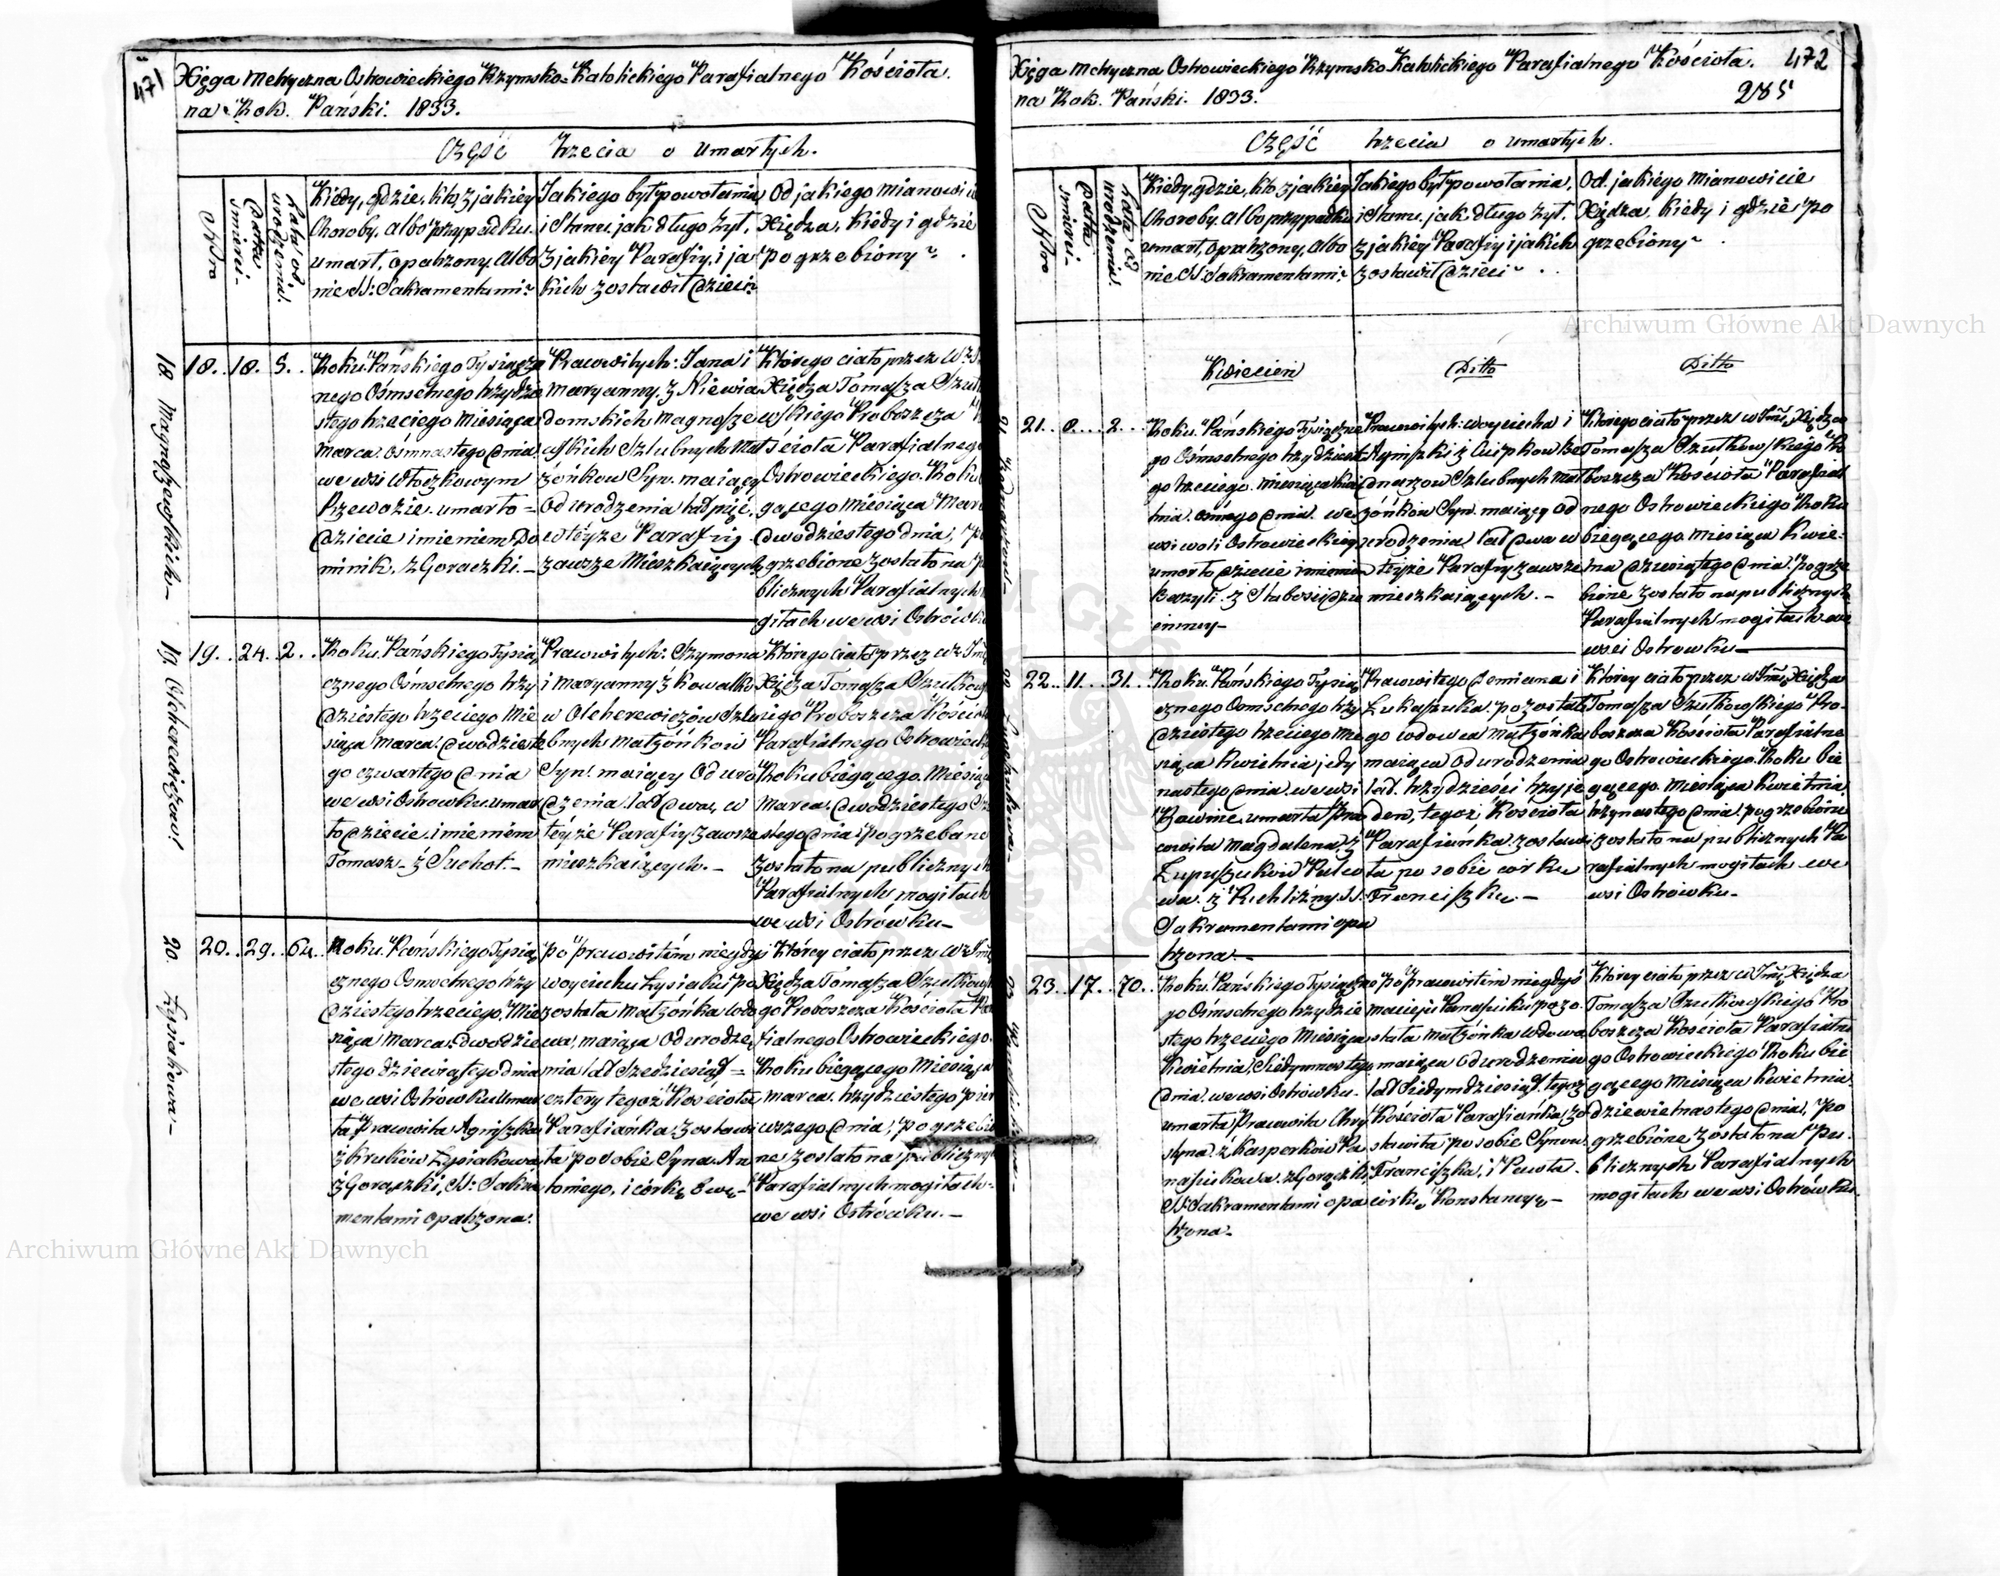 471
Xięga Metryczna Ostrowieckiego Rzymsko=Katolickiego Parafialnego Kościoła.
na Rok. Pański. 1833.
Część trzecia o umarłych.
Nro
Data śmierci.
Lata od urodzenia.
Kiedy, gdzie, kto, z jakiey
choroby, albo przypadku
umarł, opatrzony, albo
nie SS: Sakramentami?
Jakiego był powołania
i Stanu, jak długo żył,
z jakiey Parafiy, i ja
kich zostawił dzieci?
Od jakiego mianowi
Xiędza, kiedy i gdzie
pogrzebiony?
18
18. 18. 5.
Roku Pańskiego Tysiącz
nego Ośmsetnego trzydzie
stego trzeciego miesiąca
Marca ośmnastego dnia
we wsi
umarło
dziecie imieniem Do
minik, z Goraczki.
Prawowitych: Jana i
Maryanny z Niewia
domskich Magnusze
wskich Szlubnych Mał
żónkow Syn, maiący
od urodzenia lat pięć,
w téyże Parafiy
zawsze mieszkaiących
Którego ciało przez
Xiędza Tomasza
Proboszcza
ścioła Parafialnego
Ostrowieckiego Roku
gącego miesiąca Mar
dwódziestego dnia,
grzebione zostało na
blicznych Parafialnych
gilach we wsi Ostrówku
19. Olcherowiczów
19. 24. 2.
Roku Pańskiego Tysią
cznego Ośmsetnego trzy
dziestego trzeciego Mie
siąca Marca dwódzieste
go czwartego dnia
we wsi Ostrowku umar
ło dziecie imieniem
Tomasz z Suchot.
Prawowitych: Szymona
i Maryanny z Kowalko
w Olcherowiczów Szlu
bnych Małżónkow
Syn maiący od uro
dzenia lat dwa, w
téyże Parafiy zawsze
mieszkaiących.
Którego ciało przez
Xiędza Tomasza
Proboszcza Kościo
Parafialnego Ostrowieck
Roku biegącego miesią
Marca dwódziestego
stego dnia pogrzebano
zostało na publicznych
Parafialnych mogiłach
we wsi Ostrówku
20 Łysiakowa
20. 29. 64.
Roku Pańskiego Tysią
cznego Ośmsetnego trzy
dziestego trzeciego Mie
siąca Marca dwódzie
stego dziewiątego dnia
we wsi Ostrówku umar
ła Pracowita Agniszka
z Kruków Łysiakowa
z Gorączki, SS: Sakra
mentami opatrzona.
Po Pracowitem niegdyś
Woyciechu Łysiaku po
została Małżónka wdo
wa, maiąca od urodze
nia lat Szedziesiąt=
cztery tegoż Kościoła
Parafiánka, zostawi
ła po sobie Syna An
toniego, i córkę Ewę
Którey ciało przez
Xiędza Tomasza
go Proboszcza Kościoła Pa
fialnego Ostrowieckiego.
Roku biegącego Miesiąca
Marca trzydziestego pier
wszego dnia, pogrzebio
ne zostało na publicznych
Parafialnych mogiłach
we wsi Ostrówku.
472
285
Xięga Metryczna Ostrowieckiego Rzymsko Katolickiego Parafialnego Kościoła.
na Rok. Pański. 1833.
Część trzecia o umarłych.
Nro
Data śmierci.
Lata od urodzenia.
Kiedy, gdzie, kto, z jakiey
choroby, albo przypadku
umarł, opatrzony, albo
nie SS: Sakramentami?
Jakiego był powołania,
i Stanu, jak długo żył,
z jakiey Parafiy i jakich
zostawił dzieci?
Od jakiego mianowicie
Xiędza, kiedy i gdzie po
grzebiony?
Kwiecień
Ditto
Ditto
21. 8. 2.
Roku Pańskiego Tysiączne
go Ośmsetnego trzydzieste
go trzeciego miesiąca Kwie
tnia ósmego dnia we
wsi woli Ostrowieckiey
umarło dziecie imieniem
Bazyli z Słabości dzie
cinney
Prawowitych: Woyciecha i
Agniszki z
Szlubnych Mał
żónków Syn, maiący od
urodzenia lat dwa w
téyże Parafiy zawsze
mieszkaiących.
Którego ciało przez
Xiędza
Tomasza Szutkowskiego Pro
boszcza Kościoła Parafial
nego Ostrowieckiego Roku
biegącego miesiąca Kwie
tnia dziesiątego dnia pogrze
bione zostało na publicznych
Parafialnych mogiłach we
wsi Ostrowku
22. 11. 31.
Roku Pańskiego Tysią
cznego Ośmsetnego trzy
dziestego trzeciego mie
siąca Kwietnia jedy
nastego dnia we wsi
umarła Pra
cowita Magdalena z
SS.
Sakramentami opa
trzona.
Pracowitego Demiana
Łukaszuka pozostał
wdowca Małżónka
maiąca od urodzenia
lat trzydzieści
jeden, tegoż Kościoła
Parafiánka zostawi
ła po sobie córkę
Franciszkę.
Którey ciało przez
Xiędza
Tomasza Szutkowskiego Pro
boszcza Kościoła Parafialne
go Ostrowieckiego Roku bie
gącego miesiąca Kwietnia
trzynastego dnia pogrzebione
zostało na publicznych Pa
rafialnych mogiłach we
wsi Ostrówku
23. 17. 70.
Roku Pańskiego Tysiączne
go Ośmsetnego trzydzie
stego trzeciego Miesiąca
Kwietnia, Siedymnastego
dnia we wsi Ostrówku
umarła Pracowita Chry
styna z Kasperków Pa
nasiukowa z Gorączki
SS. Sakramentami opa
trzona
Po Pracowitem niegdyś
Macieju Panasiuku pozo
stała Małżónka wdowa
maiąca od urodzenia
lat Siedymdziesiąt tegoż
Kościoła Parafiánka, zo
stawiła po sobie Synów
Franciszka, i Pawła
córkę Konstancyę
Którey ciało przez
Xiędza
Tomasza Szutkowskiego Pro
boszcza Kościoła Parafialne
go Ostrowieckiego Roku bie
gącego Miesiąca Kwietnia
dziewietnastego dnia, po
grzebione zostało na Pu
blicznych Parafialnych
mogiłach we wsi Ostrówku
Archiwum Główne Akt Dawnych
Archiwum Główne Akt Dawnych